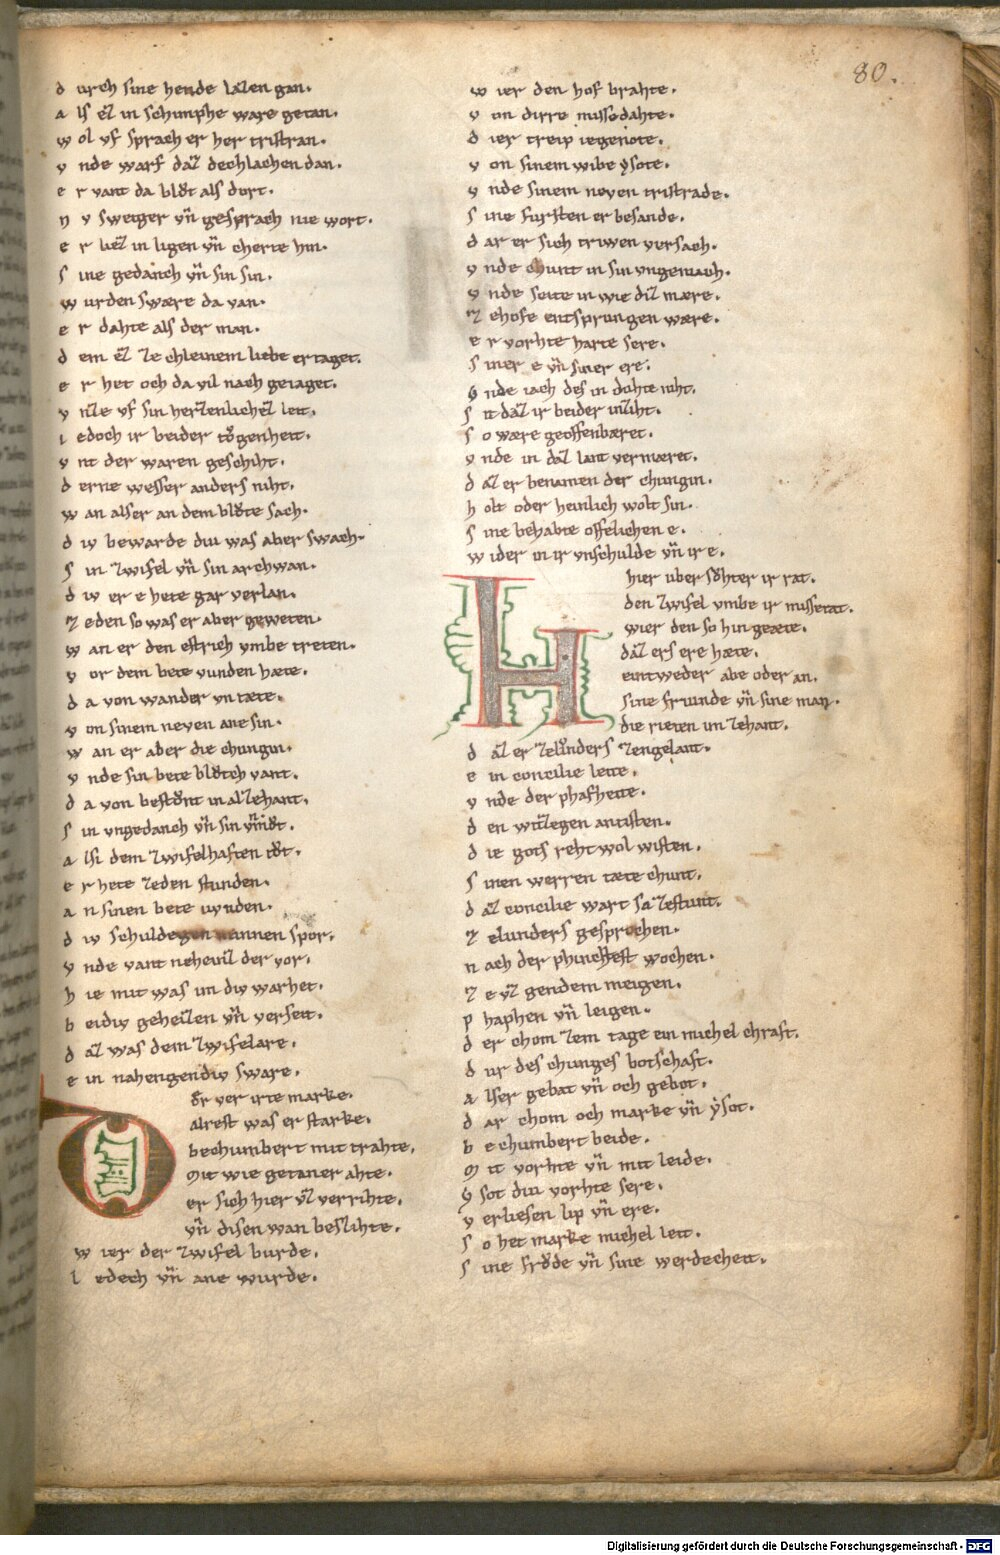 80.
durch sine hende lazen gan.
als ez in schimphe ware getan.
wol vf sprach er her tristran.
vnde warf daz dechlachen dan.
er vant da blůt als dort.
nv sweiger vn̄ gesprach nie wort.
er liez in ligen vn̄ cherte hin.
sine gedanch vn̄ sin sin.
wurden swære da van.
er dahte als der man.
dem ez ze chleinem liebe ertaget.
er het och da vil nach geiaget.
vnze vf sin herzenlichez leit.
iedoch ir beider tǒgenheit.
vnt der waren geschiht.
derne wesser anders niht.
wan alser an dem blůte sach.
div bewarde diu was aber swach.
sin zwifel vn̄ sin archwan.
div er e hete gar verlan.
zeden so was er aber geweten.
wan er den estrich vmbe treten.
vor dem bete vunden hæte.
da von wander vntæte.
von sinem neven ane sin.
wan er aber die chungin.
vnde sin bete blůtch vant.
da von bestůnt in al zehant.
sin vngedanch vn̄ sin vnmůt.
alsi dem zwifelhaften tůt.
er hete zeden stunden.
an sinen bete vvnden.
div schuldegen minnen spor.
vnde vant nehein der vor.
hie mit was im div warheit.
beidiv geheizen vn̄ verseit.
daz was dem zwifelare.
ein nahengendiv sware.
Dǒr ver irte marke.
alrest was er starke.
bechumbert mit trahte.
Mit wie getaner ahte.
er sich hier vz verrihte.
vn̄ disen wan beslihte.
wier der zwifel burde.
ledech vn̄ ane wurde.
wier den hof brahte.
von dirre missedahte.
dier treip iegenote.
von sinem wibe ẏsote.
vnde sinem neven tristrade.
sine fursten er besande.
dar er sich triwen versach.
vnde chunt in sin vngemach.
vnde seite in wie diz mære.
zehofe entsprungen wære.
er vorhte harte sere.
siner e vn̄ siner ere.
Vnde iach des in duhte niht.
sit daz ir beider inziht.
so wære geoffenbæret.
vnde in daz lant vermæret.
daz er benamen der chungin.
holt oder heinlich wolt sin.
sine behabte offelichen e.
wider in ir vnschulde vn̄ ir e.
Hhier uber sůhter ir rat.
den zwifel vmbe ir missetat.
wier den so hin geæte.
daz ers ere hæte.
eintweder abe oder an.
sine friunde vn̄ sine man.
die rieten im zehant.
daz er zelůnders zengelant.
ein concilie leite.
vnde der phafheite.
den witzegen antisten.
die gots reht wol wisten.
sinen werren tæte chunt.
daz concilie wart sa zestunt.
zelunders gesprochen.
nach der phinchstest wochen.
ze vz gendem meigen.
phaphen vn̄ leigen.
der chom zem tage ein michel chraft.
dur des chunges botschaft.
alser gebat vn̄ och gebot.
dar chom och marke vn̄ ẏsot.
bechumbert beide.
Mit vorhte vn̄ mit leide.
Ysot diu vorhte sere.
verliesen lip vn̄ ere.
so het marke michel leit.
sine frǒde vn̄ sine werdecheit.
Digitalisierung gefördert durch die Deutsche Forschungsgemeinschaft - DFG